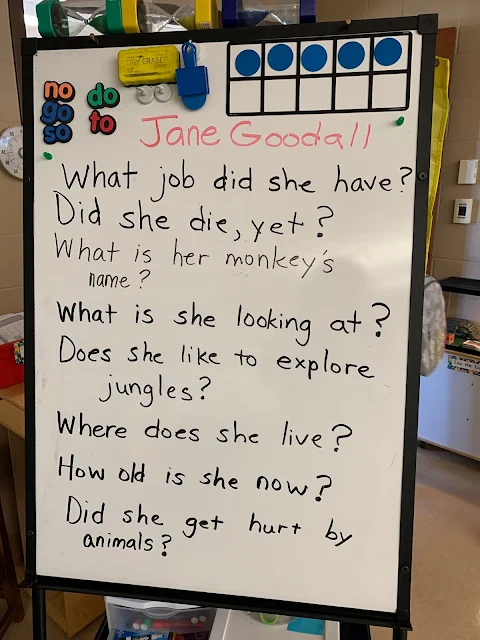 DRY ERASE
no
go
so
do
to
Jane Goodall
What job did she have?
Did she die, yet?
What is her monkey's
name?
What is she looking at?
Does she like to explore
jungles?
Where does she live?
How old is she now?
Did she get hurt by
animals?